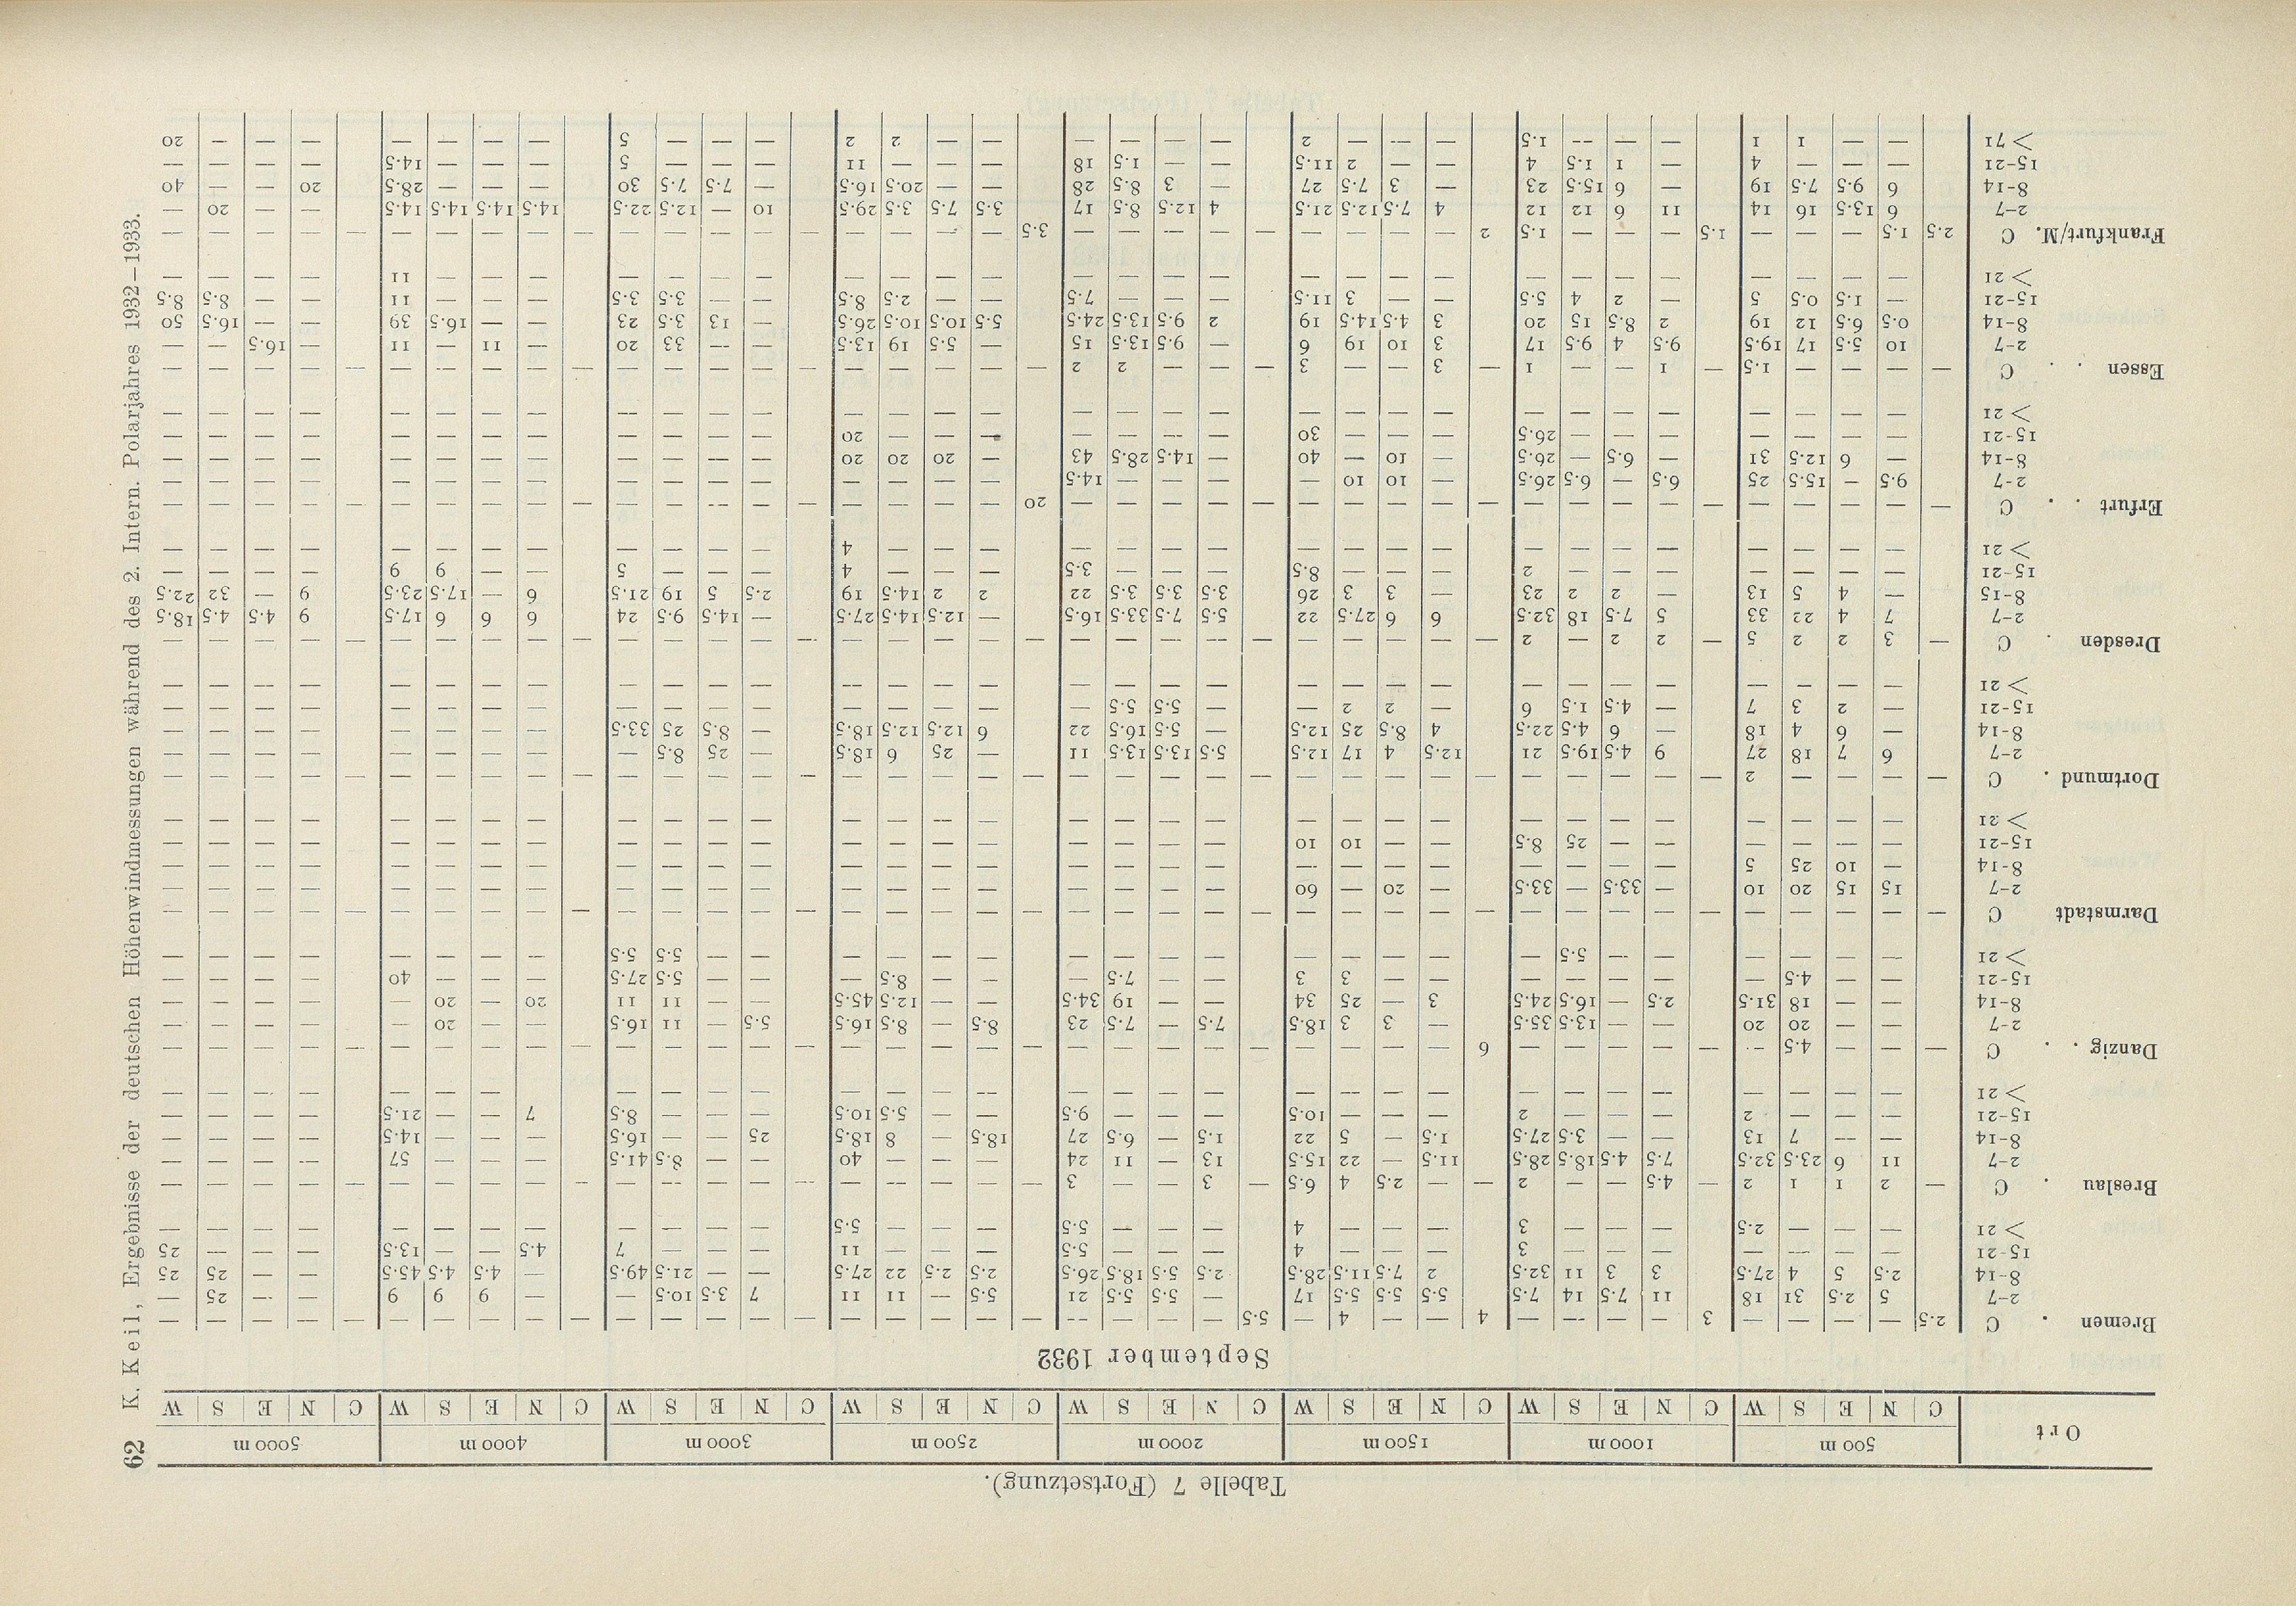 62 K. Keil, Ergebnisse der deutschen Höhenwindmessungen während des 2. Intern. Polarjahres 1932–1933.
Tabelle 7 (Fortsetzung).
Ort 500 m 1000 m 1500 m 2000 m 2500 m 3000 m 4000 m 5000 m
C N E S W C N E S W C N E S W C N E S W C N E S W C N E S W C N E S W C N E S W
September 1932
Bremen . C 2.5 — — — — 3 — — — — 4 — — 4 — 5.5 — — — — — — — — — — — — — — — — — — — — — — — —
2–7 5 2.5 31 18 11 7.5 14 7.5 5.5 5.5 5.5 17 — 5.5 5.5 21 5.5 — 11 11 7 3.5 10.5 — — 9 9 9 — — 25 —
8–14 2.5 5 4 27.5 3 3 11 32.5 2 7.5 11.5 28.5 2.5 5.5 18.5 26.5 2.5 2.5 22 27.5 — — 21.5 49.5 — 4.5 4.5 45.5 — — 25 25
15–21 — — — — — — — 3 — — — 4 — — — 5.5 — — — 11 — — — 7 4.5 — — 13.5 — — — 25
> 21 — — — 2.5 — — — 3 — — — 4 — — — 5.5 — — — 5.5 — — — — — — — — — — — —
Breslau . C — 2 1 1 2 — 4.5 — — 2 — — 2.5 4 6.5 — 3 — — 3 — — — — — — — — — — — — — — — — — — — —
2–7 11 6 23.5 32.5 7.5 4.5 18.5 28.5 11.5 — 22 15.5 13 — 11 24 — — — 40 — — 8.5 41.5 — — — 57 — — — —
8–14 — — 7 13 — — 3.5 27.5 1.5 — 5 22 1.5 — 6.5 27 18.5 — 8 18.5 25 — — 16.5 — — — 14.5 — — — —
15–21 — — — 2 — — — 2 — — — 10.5 — — — 9.5 — — 5.5 10.5 — — — 8.5 7 — — 21.5 — — — —
> 21 — — — — — — — — — — — — — — — — — — — — — — — — — — — — — — — —
Danzig . . C — — — 4.5 — — — — — — 6 — — — — — — — — — — — — — — — — — — — — — — — — — — — — —
2–7 — — 20 20 — — 13.5 35.5 — 3 3 18.5 7.5 — 7.5 23 8.5 — 8.5 16.5 5.5 — 11 16.5 — — 20 — — — — —
8–14 — — 18 31.5 2.5 — 16.5 24.5 3 — 25 34 — — 19 34.5 — — 12.5 45.5 — — 11 11 20 — 20 — — — — —
15–21 — — 4.5 — — — — — — — 3 3 — — 7.5 — — — 8.5 — — — 5.5 27.5 — — — 40 — — — —
> 21 — — — — — — 5.5 — — — — — — — — — — — — — — — 5.5 5.5 — — — — — — — —
Darmstadt C — — — — — — — — — — — — — — — — — — — — — — — — — — — — — — — — — — — — — — — —
2–7 15 15 20 10 — 33.5 — 33.5 — 20 — 60 — — — — — — — — — — — — — — — — — — — —
8–14 — 10 25 5 — — — — — — — — — — — — — — — — — — — — — — — — — — — —
15–21 — — — — — — 25 8.5 — — 10 10 — — — — — — — — — — — — — — — — — — — —
> 21 — — — — — — — — — — — — — — — — — — — — — — — — — — — — — — — —
Dortmund . C — — — — 2 — — — — — — — — — — — — — — — — — — — — — — — — — — — — — — — — — — —
2–7 6 7 18 27 9 4.5 19.5 21 12.5 4 17 12.5 5.5 13.5 13.5 11 — 25 6 18.5 — 25 8.5 — — — — — — — — —
8–14 — 6 4 18 — 6 4.5 22.5 4 8.5 25 12.5 — 5.5 16.5 22 6 12.5 12.5 18.5 — 8.5 25 33.5 — — — — — — — —
15–21 — 2 3 7 — 4.5 1.5 6 — 2 2 — — 5.5 5.5 — — — — — — — — — — — — — — — — —
> 21 — — — — — — — — — — — — — — — — — — — — — — — — — — — — — — — —
Dresden . C — 3 2 2 5 — 2 2 — 2 — — — — — — — — — — — — — — — — — — — — — — — — — — — — — —
2–7 7 4 22 33 5 7.5 18 32.5 6 6 27.5 22 5.5 7.5 33.5 16.5 — 12.5 14.5 27.5 — 14.5 9.5 24 6 6 6 17.5 9 4.5 4.5 18.5
8–15 — 4 5 13 — 2 2 23 — 3 3 26 3.5 3.5 3.5 22 2 2 14.5 19 2.5 5 19 21.5 6 — 17.5 23.5 9 — 32 22.5
15–21 — — — — — — — 2 — — — 8.5 — — — 3.5 — — — 4 — — — 5 — — 9 9 — — — —
> 21 — — — — — — — — — — — — — — — — — — — 4 — — — — — — — — — — — —
Erfurt . . C — — — — — — — — — — — — — — — — — — — — 20 — — — — — — — — — — — — — — — — — — —
2–7 9.5 — 15.5 25 6.5 — 6.5 26.5 — 10 10 — — — — 14.5 — — — — — — — — — — — — — — — —
8–14 — 6 12.5 31 — 6.5 — 26.5 — 10 — 40 — 14.5 28.5 43 — 20 20 20 — — — — — — — — — — — —
15–21 — — — — — — — 26.5 — — — 30 — — — — — — — 20 — — — — — — — — — — — —
> 21 — — — — — — — — — — — — — — — — — — — — — — — — — — — — — — — —
Essen . . C — — — — 1.5 — 1 — — 1 — 3 — — 3 — — — 2 2 — — — — — — — — — — — — — — — — — — — —
2–7 10 5.5 17 19.5 9.5 4 9.5 17 3 10 19 6 — 9.5 13.5 15 — 5.5 19 13.5 — — 33 20 — 11 — 11 — 16.5 — —
8–14 0.5 6.5 12 19 2 8.5 15 20 3 4.5 14.5 19 2 9.5 13.5 24.5 5.5 10.5 10.5 26.5 — 13 3.5 23 — — 16.5 39 — — 16.5 50
15–21 — 1.5 0.5 5 — 2 4 5.5 — — 3 11.5 — — — 7.5 — — 2.5 8.5 — — 3.5 3.5 — — — 11 — — 8.5 8.5
> 21 — — — — — — — — — — — — — — — — — — — — — — — — — — — 11 — — — —
Frankfurt/M. C 2.5 1.5 — — — 1.5 — — — 1.5 2 — — — — — — — — — 3.5 — — — — — — — — — — — — — — — — — — —
2–7 6 13.5 16 14 11 6 12 12 4 7.5 12.5 21.5 4 12.5 8.5 17 3.5 7.5 3.5 29.5 10 — 12.5 22.5 14.5 14.5 14.5 14.5 — — 20 —
8–14 6 9.5 7.5 19 — 6 15.5 23 — 3 7.5 27 — 3 8.5 28 — — 20.5 16.5 — 7.5 7.5 30 — — — 28.5 20 — — 40
15–21 — — — 4 — 1 1.5 4 — — 2 11.5 — — 1.5 18 — — — 11 — — — 5 — — — 14.5 — — — —
> 71 — — 1 1 — — — 1.5 — — — 2 — — — — — — 2 2 — — — 5 — — — — — — — 20